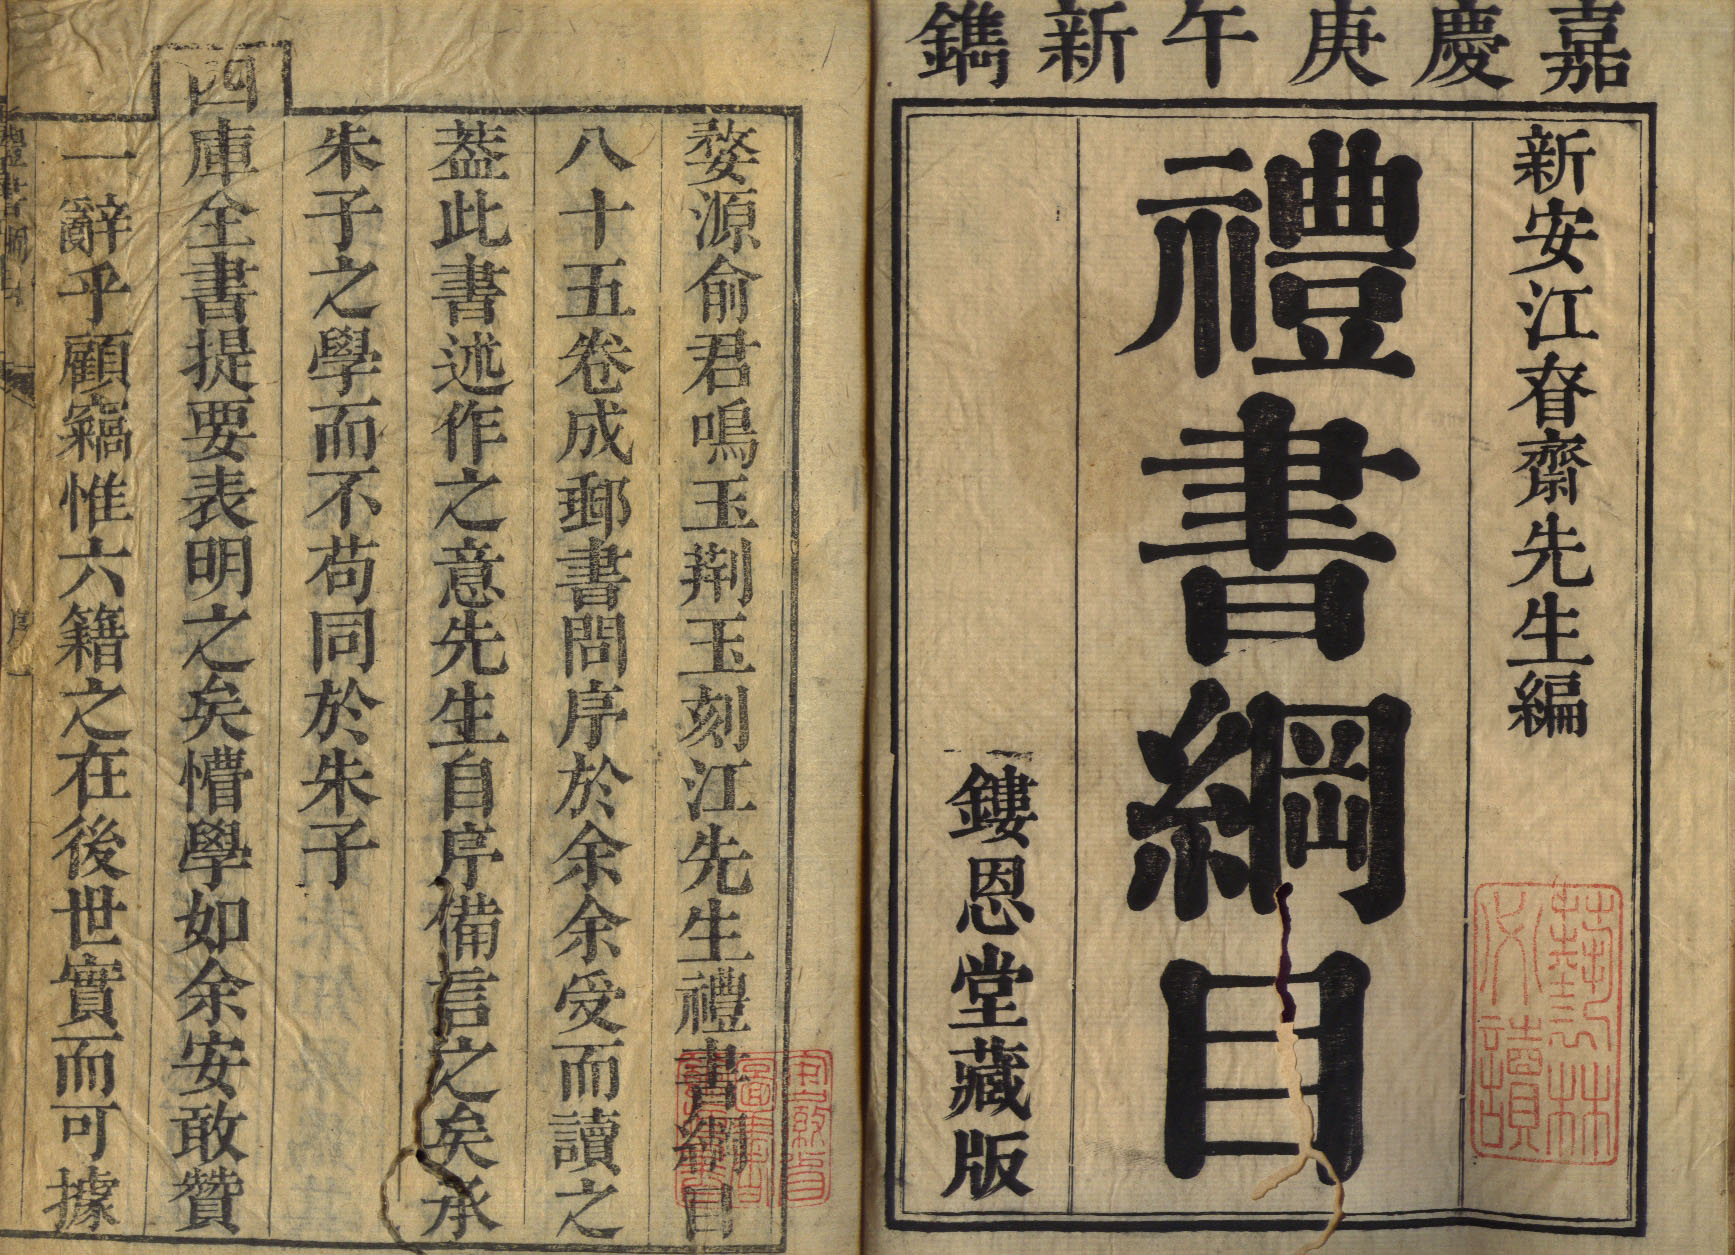 嘉慶庚午新鐫
新安江眘齋先生編
禮書綱目
鏤恩堂藏版
婺源俞君鳴玉荆玉刻江先生禮書綱目
八十五卷成郵書問序於余余受而讀之
葢此書述作之意先生自序備言之矣承
朱子之學而不苟同於朱子
四庫全書提要表明之矣懵學如余安敢贊
一辭乎顧竊惟六籍之在後世實而可據